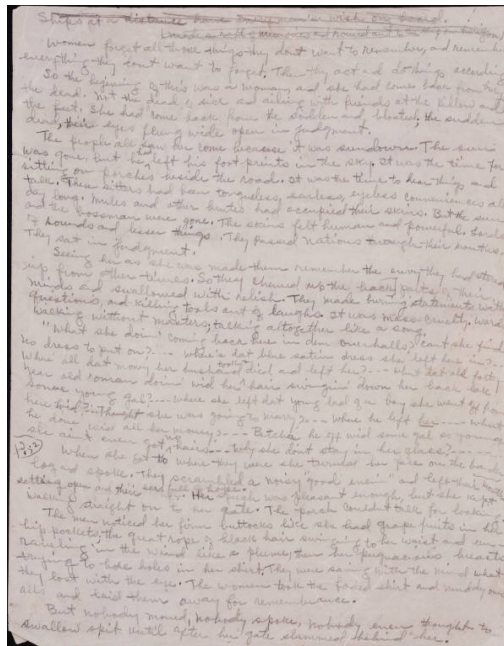 Ships at a distance have every man's wish on board.
Women forget all those things they dont want to remember, and remember
everything they dont want to forget. Then they act and do things according
So the beginning of this was a woman, and she had come back from burying
the dead. Not the dead of sick and ailing with friends at the pillow and
the feet. She had come back from the sodden and bloated; the sudden
dead, their eyes flung wide open in judgment.
The people all saw her come because it was sundown. The sun
was gone, but he left his foot-prints in the sky. It was the time for
sitting on porches beside the road. It was the time to hear things and
talk. These sitters had been tongueless, earless, eyeless conveniences all
day long. Mules and other brutes had occupied their skins. But the sun
and the bossman were gone. The skins felt human and powerful. Lords
of sounds and lesser things. They passed nations through their mouths.
They sat in judgment.
Seeing her as she was made them remember the envy they had stored
up from other times. So they chewed up the back parts of their
minds and swallowed with relish. They made burning statements with
questions, and killing tools out of laughs. It was mass cruelty,
walking without masters, talking altogether like a song.
"What she doin' coming back here in dem overhalls? Can't she find
no dress to put on?... Where's dat blue satin dress she left here in?...
Where all dat money her husband died and left her?... What dat old forty
year old 'oman doin' wid her hair swingin' down her back like
some young gal?... Where she left dat young lad of a boy she went off
here wid?... Thought she was going to marry?... Where he left her... What
he done wid all her money?... Betcher he off wid some gal so young
she ain't even got hairs... Why she dont stay in her class?...
When she got to where they were she turned her face on the bander
log and spoke. They scrambled a noisy "good evenin'" and left their mouths
setting open and their ears full of hope. Her speech was pleasant enough, but she kept
walking straight on to her gate. The porch couldn't talk for looking.
The men noticed her firm buttocks like she had grape fruits in her
hip pockets; the great rope of black hair swinging to her waist and
raveling in the wind like a plume; then her pugnacious breasts
trying to bore holes in her shirt. They were saving with the mind what
they lost with the eye. The women took the faded shirt and muddy over-
alls and laid them away for remembrance.
But nobody moved, nobody spoke, nobody even thought to
swallow spit until after her gate slammed behind her.